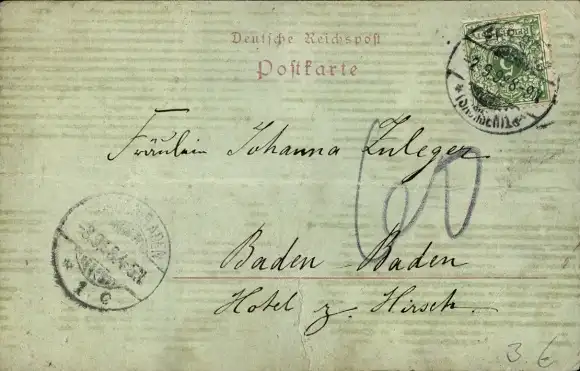 Deutsche Reichspost
Postkarte
Fräulein Johanna Zuleger
60
Baden-Baden
Hotel z. Hirsch.
* 1 c
3 €